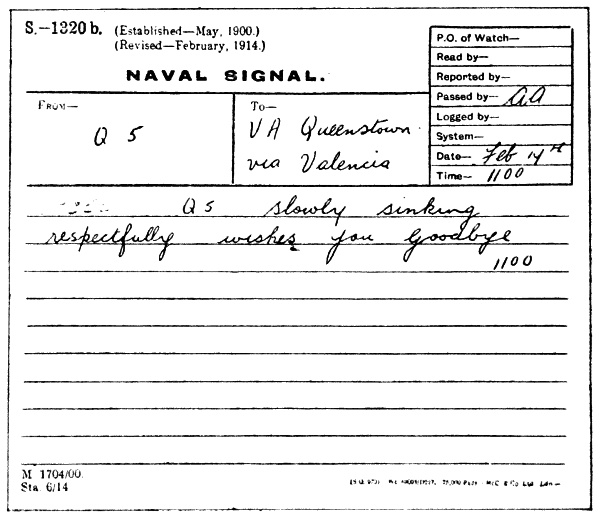 S.—1320b. (Established—May, 1900.)
(Revised—February, 1914.)
NAVAL SIGNAL.
P.O. of Watch—
Read by—
Reported by—
Passed by— AA
Logged by—
System—
Date— Feb 17th
Time— 1100
From—
Q 5
To—
VA Queenstown
via Valencia
Q5 slowly sinking
respectfully wishes you Goodbye
1100
M 1704/00.
Sta. 6/14